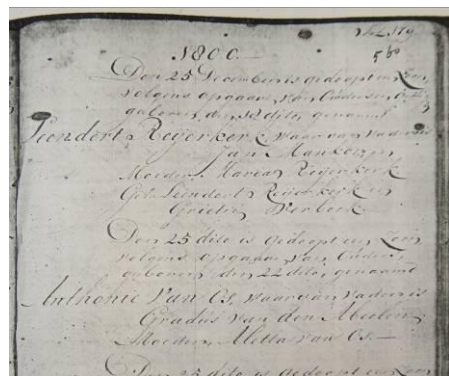 1800.
Den 25 December is gedoopt een Zoon
volgens opgaaf van Ouders
geboren den 12 dito, genaamt
Leendert Reijerkerk waar van vader is
Jan
Moeder Maria Reijerkerk
Get. Leendert Reijerkerk en
Grietje Verbeek
Den 25 dito is gedoopt een Zoon
volgens opgaaf van Ouders
geboren den 22 dito, genaamt
Anthonie van Os, waar van vader is
Gradus van den Meulen
Moeder, Aletta van Os.
Den 25 dito is gedoopt een Zoon